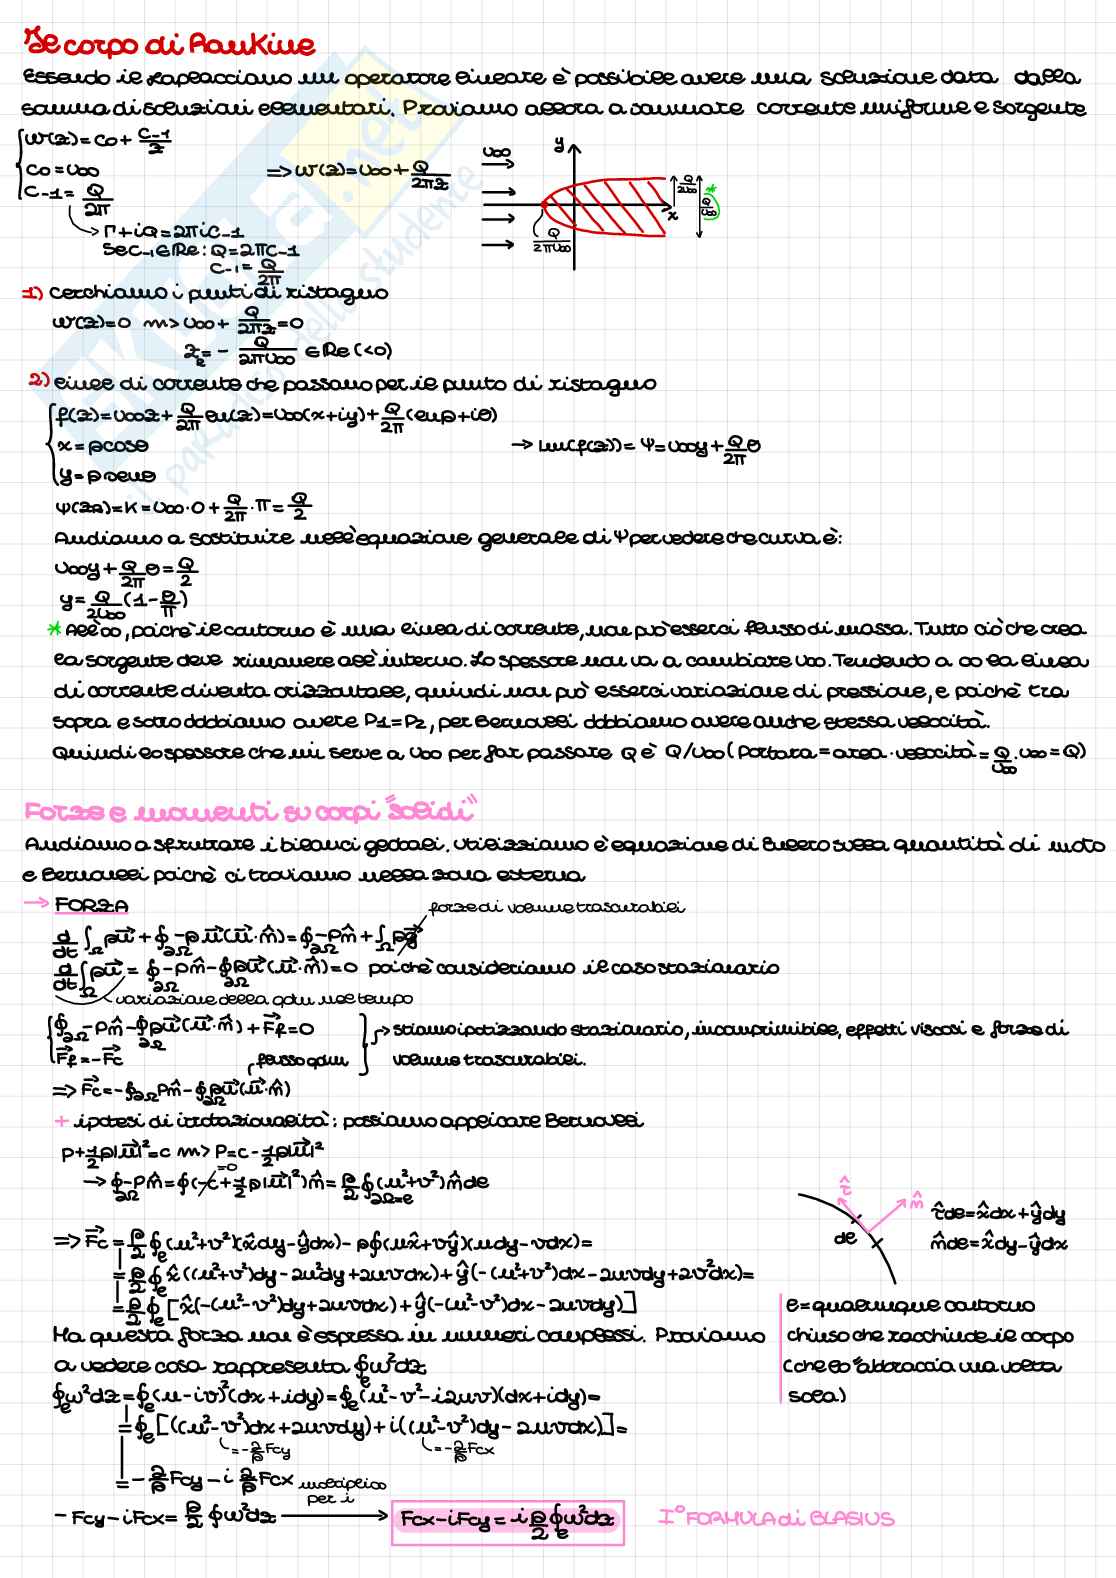 Il corpo di Rankine
Essendo il laplacciano un operatore lineare è possibile avere una soluzione data dalla
somma di soluzioni elementari. Proviamo allora a sommare corrente uniforme e sorgente
w(z)=c0+c-1/z
c0=U∞ => w(z)=U∞+Q/2πz
c-1=Q/2π
Γ+iQ=2πic-1
Se c-1∈Re: Q=2πc-1
c-1=Q/2π
U∞ y x Q/2πU∞ Q/2U∞ Q/U∞ *
1) Cerchiamo i punti di ristagno
w(z)=0 ~> U∞+Q/2πz=0
zR=-Q/2πU∞ ∈Re (<0)
2) linee di corrente che passano per il punto di ristagno
f(z)=U∞z+Q/2π ln(z)=U∞(x+iy)+Q/2π(lnρ+iθ)
x=ρcosθ → Im(f(z))=Ψ=U∞y+Q/2π θ
y=ρsenθ
Ψ(zR)=K=U∞·0+Q/2π·π=Q/2
Andiamo a sostituire nell'equazione generale di Ψ per vedere che curva è:
U∞y+Q/2π θ=Q/2
y=Q/2U∞(1-θ/π)
* All'∞, poichè il contorno è una linea di corrente, non può esserci flusso di massa. Tutto ciò che crea
la sorgente deve rimanere all'interno. Lo spessore non va a cambiare U∞. Tendendo a ∞ la linea
di corrente diventa orizzontale, quindi non può esserci variazione di pressione, e poichè tra
sopra e sotto dobbiamo avere P1=P2, per Bernoulli dobbiamo avere anche stessa velocità.
Quindi lo spessore che mi serve a U∞ per far passare Q è Q/U∞ (Portata=area·velocità=Q/U∞·U∞=Q)
Forze e momenti su corpi "solidi"
Andiamo a sfruttare i bilanci globali. Utilizziamo l'equazione di Eulero sulla quantità di moto
e Bernoulli poichè ci troviamo nella zona esterna
→ FORZA
forze di volume trascurabili
d/dt ∫Ω ρu⃗ + ∮∂Ω ρu⃗(u⃗·n̂)=∮∂Ω -Pn̂ + ∫Ω ρg⃗
d/dt ∫Ω ρu⃗ = ∮∂Ω -Pn̂ - ∮∂Ω ρu⃗(u⃗·n̂)=0 poichè consideriamo il caso stazionario
variazione della qdm nel tempo
∮∂Ω -Pn̂ - ∮∂Ω ρu⃗(u⃗·n̂)+F⃗f=0 → stiamo ipotizzando stazionario, incomprimibile, effetti viscosi e forze di
F⃗f=-F⃗c flusso qdm volume trascurabili.
=> F⃗c=-∮∂Ω Pn̂ - ∮∂Ω ρu⃗(u⃗·n̂)
+ ipotesi di irrotazionalità: possiamo applicare Bernoulli
p+1/2ρ|u⃗|²=c ~> P=c-1/2ρ|u⃗|²
=0
→ ∮∂Ω -Pn̂=∮(-c+1/2ρ|u⃗|²)n̂=ρ/2 ∮∂Ω=l (u²+v²)n̂dl
τ̂ n̂ dl
τ̂dl=x̂dx+ŷdy
n̂dl=x̂dy-ŷdx
=> F⃗c=ρ/2 ∮l (u²+v²)(x̂dy-ŷdx)-ρ∮(ux̂+vŷ)(udy-vdx)=
=ρ/2 ∮l x̂((u²+v²)dy-2u²dy+2uvdx)+ŷ(-(u²+v²)dx-2uvdy+2v²dx)=
=ρ/2 ∮l [x̂(-(u²-v²)dy+2uvdx)+ŷ(-(u²-v²)dx-2uvdy)]
l=qualunque contorno
chiuso che racchiude il corpo
(che lo "abbraccia una volta
sola)
Ma questa forza non è espressa in numeri complessi. Proviamo
a vedere cosa rappresenta ∮l w²dz
∮l w²dz=∮l (u-iv)²(dx+idy)=∮l (u²-v²-i2uv)(dx+idy)=
=∮l [((u²-v²)dx+2uvdy)+i((u²-v²)dy-2uvdx)]=
=-2/ρ Fcy =-2/ρ Fcx
=-2/ρ Fcy-i 2/ρ Fcx
-Fcy-iFcx=ρ/2 ∮w²dz moltiplico per i → Fcx-iFcy=i ρ/2 ∮l w²dz I° FORMULA di BLASIUS